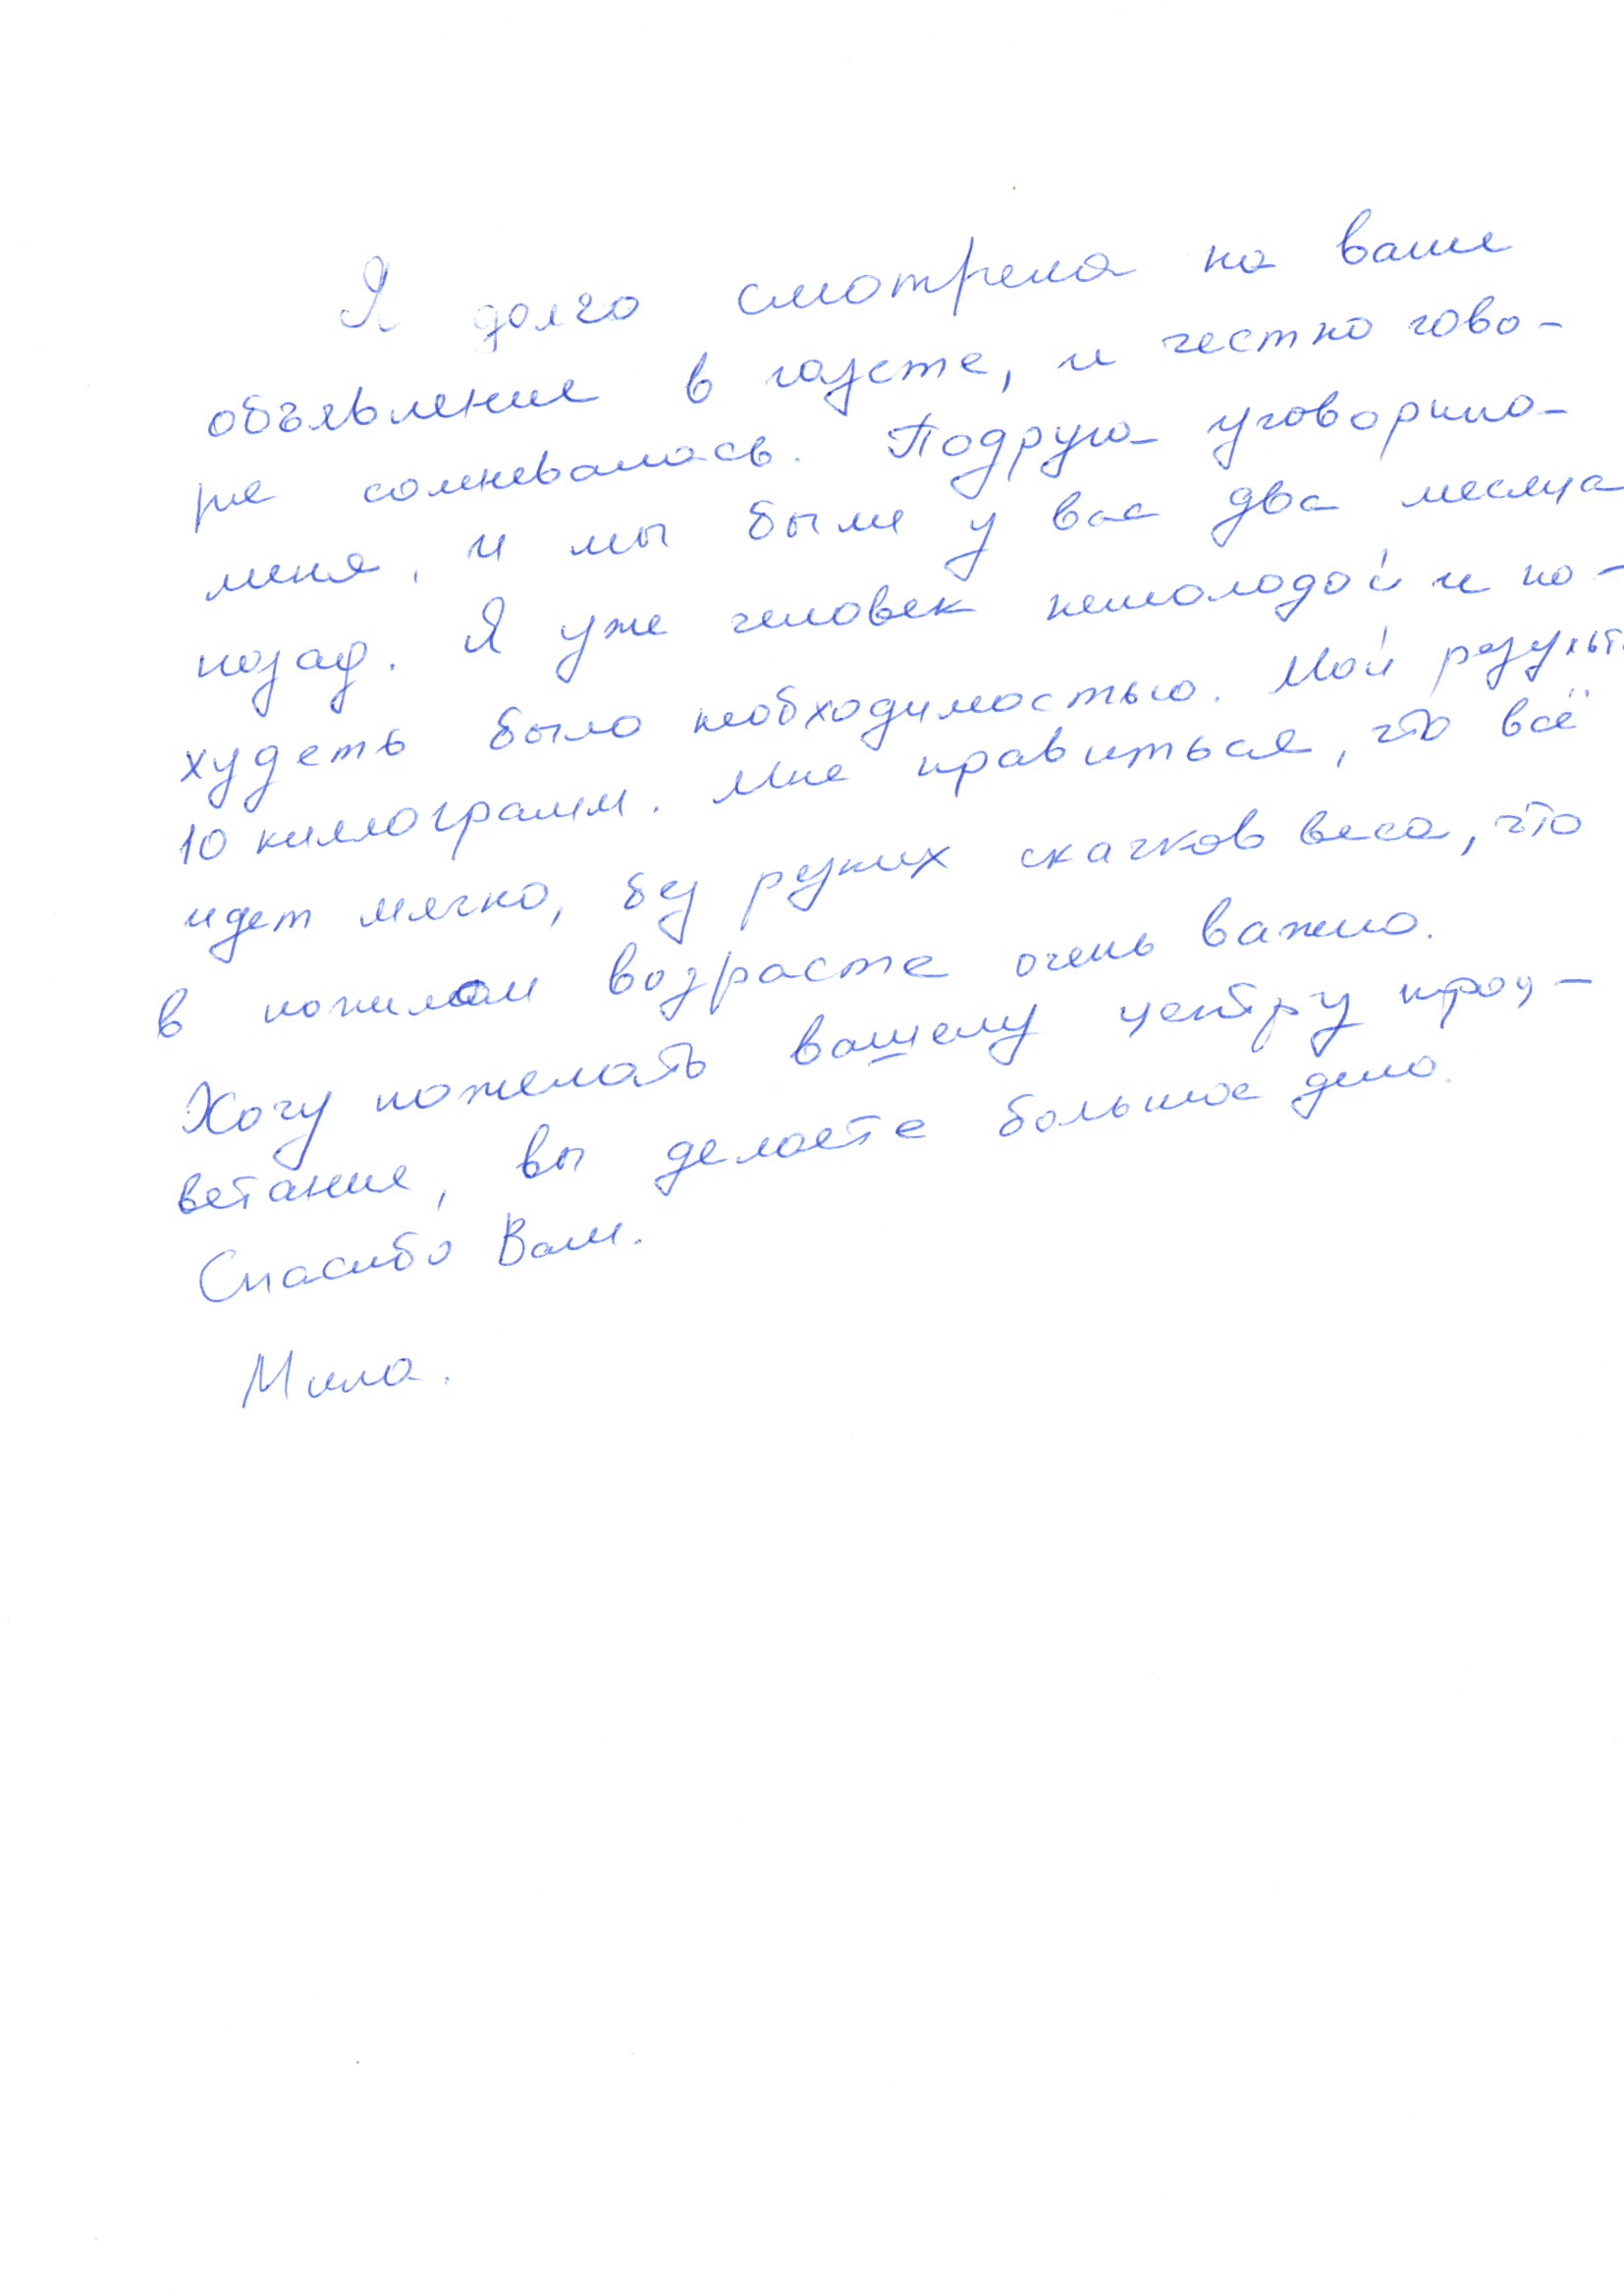 Я долго смотрела на ваше
объявление в газете, и честно гово-
ря сомневалась. Подруга уговорила
меня, и мы были у вас два месяца
назад. Я уже человек немолодой и по-
худеть было необходимостью. Мой результ
10 киллограмм. Мне нравиться, что всё
идет мягко, без резких скачков веса, что
в пожилом возрасте очень важно.
Хочу пожелать вашему центру проц-
ветание, вы делаете большое дело.
Спасибо Вам.
Мила.